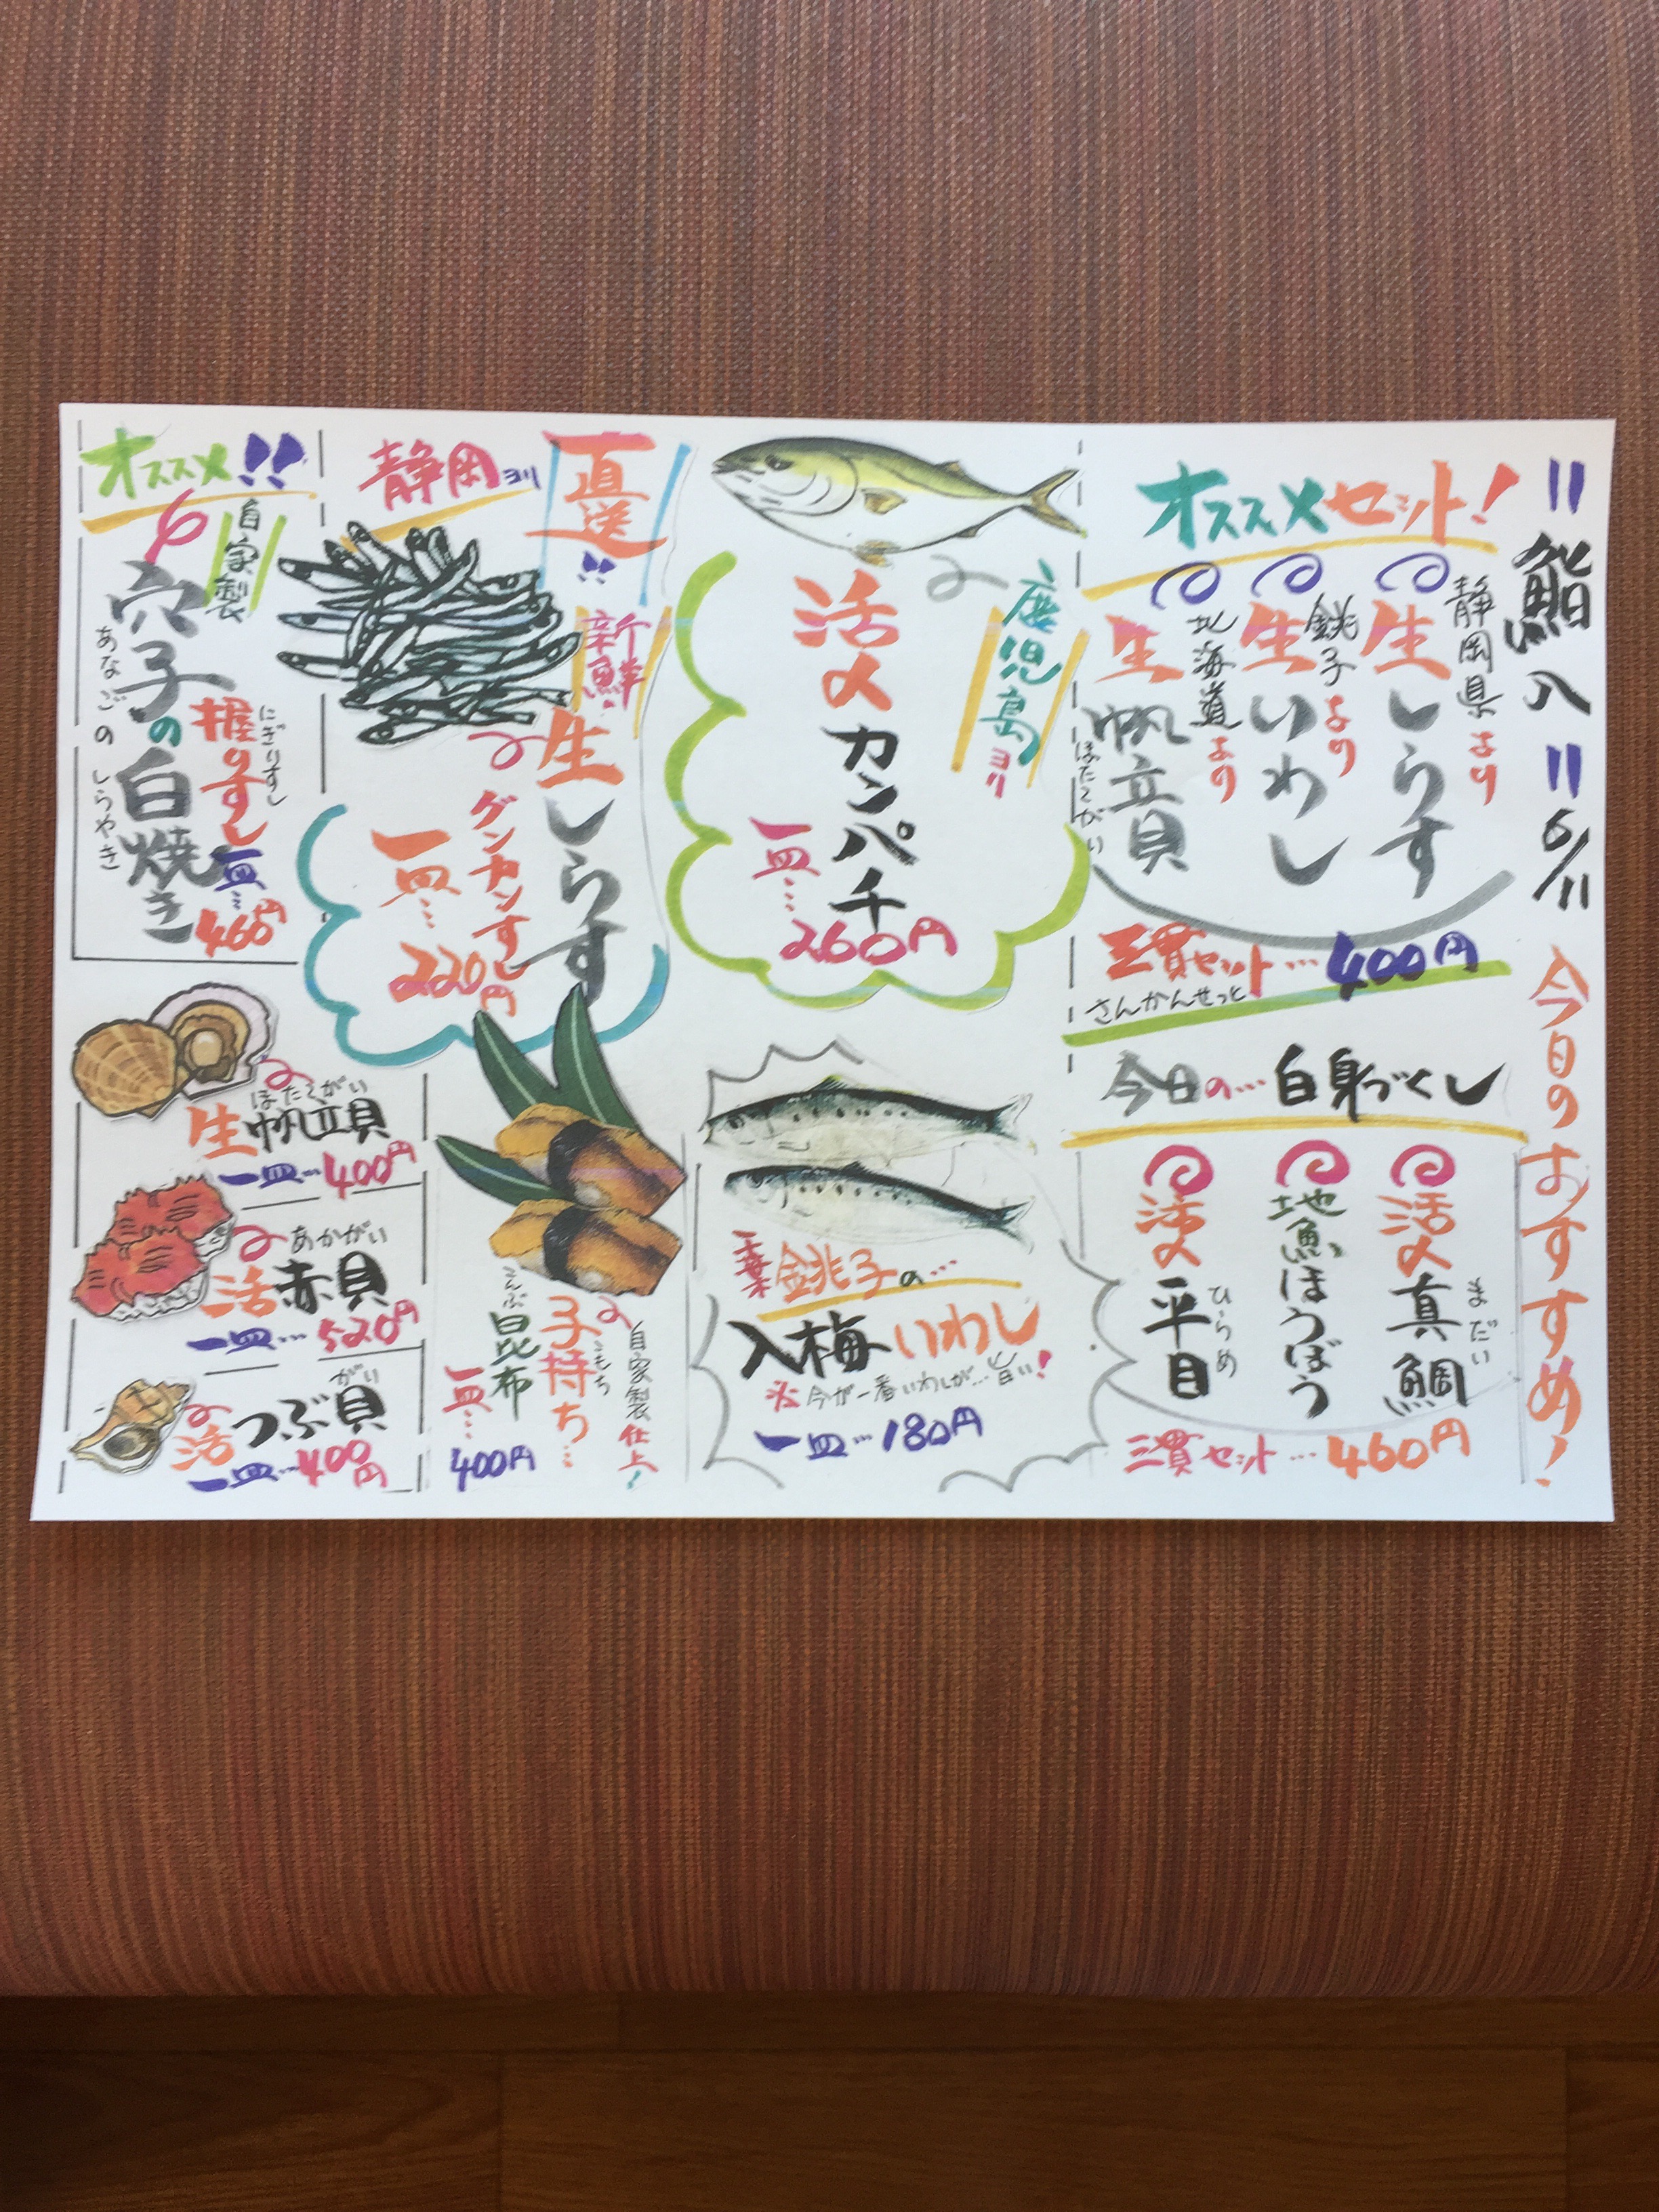 〃鮨八〃 6/11 今日のおすすめ！
オススメセット！
静岡県より
生しらす
銚子より
生いわし
北海道より
生帆立貝
ほたてがい
三貫セット…400円
さんかんせっと
今日の…白身づくし
活〆真鯛
まだい
地魚ほうぼう
活〆平目
ひらめ
三貫セット…460円
鹿児島ヨリ
活〆カンパチ
一皿…260円
千葉銚子の…
入梅いわし
※今が一番いわしが…旨い！
一皿…180円
直送!!
静岡ヨリ
新鮮
生しらす
グンカンすし
一皿…220円
自家製仕上！
子持ち…
こもち
昆布
こんぶ
一皿…400円
オススメ!!
自家製
穴子の白焼き
あなごのしらやき
握りすし
にぎりすし
一皿…460円
ほたてがい
生帆立貝
一皿…400円
あかがい
活赤貝
一皿…520円
がい
活つぶ貝
一皿…400円